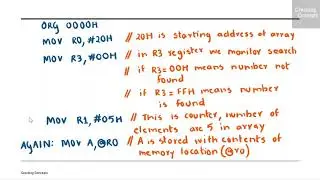 Creating
Concepts
ORG 0000H
MOV R0, #20H // 20H is starting address of array
MOV R3, #00H // in R3 register we monitor search
// if R3=00H means number not
found
// if R3=FFH means number
is found
MOV R1, #05H // This is counter, number of
elements are 5 in array
AGAIN: MOV A,@R0 // A is stored with contents of
memory location (@R0)
Creating Concepts